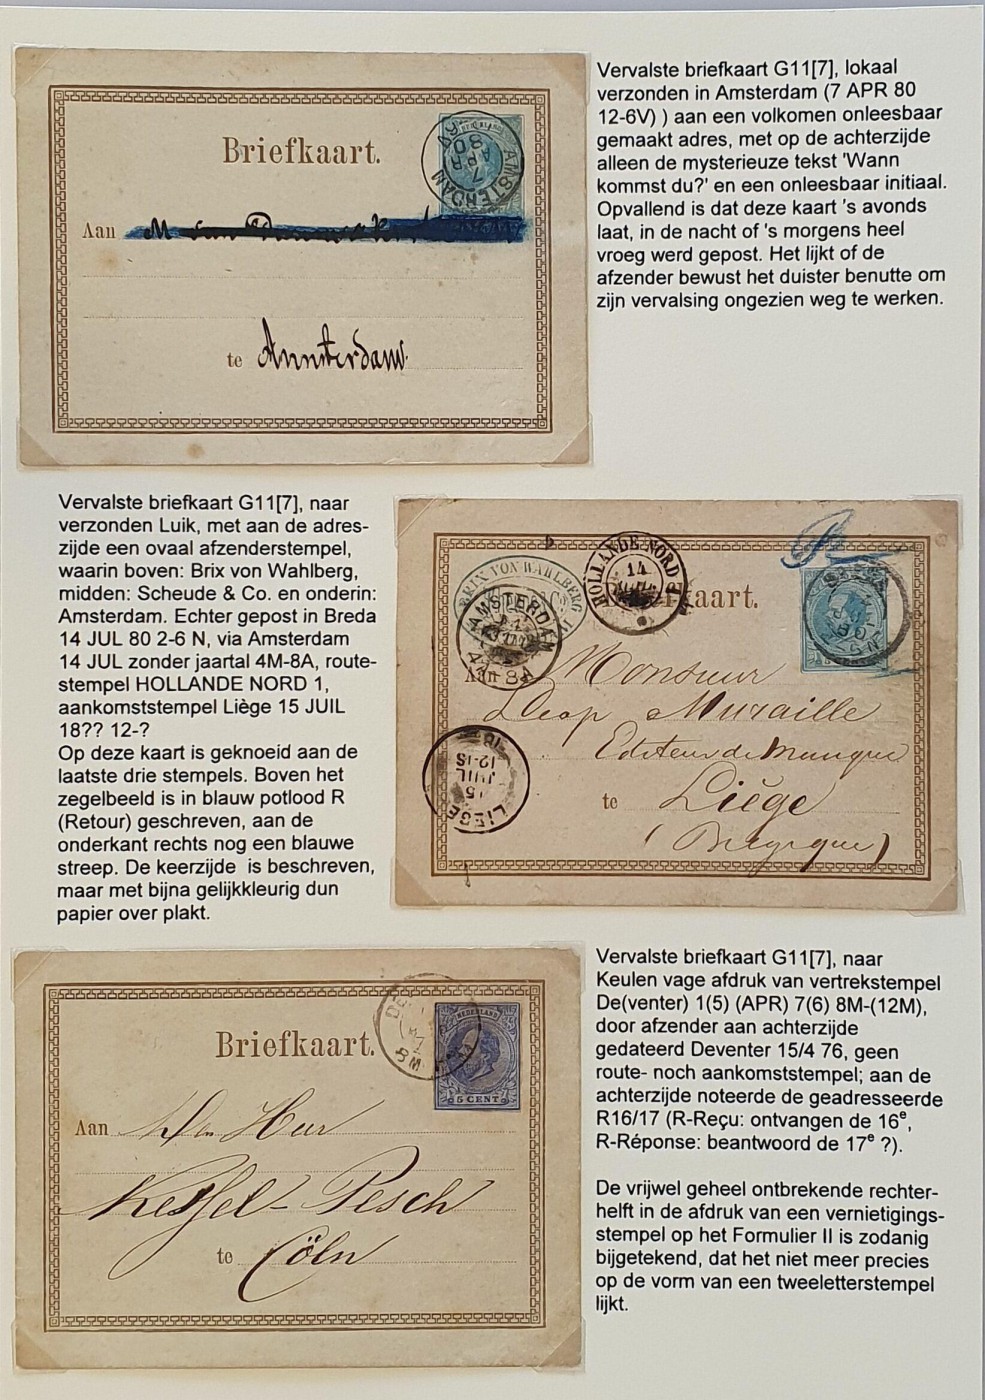 Briefkaart.
NEDERLAND
AMSTERDAM
7
APR
80
Aan
te Amsterdam
Vervalste briefkaart G11[7], lokaal
verzonden in Amsterdam (7 APR 80
12-6V) ) aan een volkomen onleesbaar
gemaakt adres, met op de achterzijde
alleen de mysterieuze tekst 'Wann
kommst du?' en een onleesbaar initiaal.
Opvallend is dat deze kaart 's avonds
laat, in de nacht of 's morgens heel
vroeg werd gepost. Het lijkt of de
afzender bewust het duister benutte om
zijn vervalsing ongezien weg te werken.
Vervalste briefkaart G11[7], naar
verzonden Luik, met aan de adres-
zijde een ovaal afzenderstempel,
waarin boven: Brix von Wahlberg,
midden: Scheude & Co. en onderin:
Amsterdam. Echter gepost in Breda
14 JUL 80 2-6 N, via Amsterdam
14 JUL zonder jaartal 4M-8A, route-
stempel HOLLANDE NORD 1,
aankomststempel Liège 15 JUIL
18?? 12-?
Op deze kaart is geknoeid aan de
laatste drie stempels. Boven het
zegelbeeld is in blauw potlood R
(Retour) geschreven, aan de
onderkant rechts nog een blauwe
streep. De keerzijde is beschreven,
maar met bijna gelijkkleurig dun
papier over plakt.
BRIX VON WAHLBERG
AMSTERDAM
HOLLANDE NORD
14
Briefkaart.
Aan Monsieur
Leop Muraille
Editeur de Musique
te Liège
(Belgique)
LIÈGE
15
JUIL
12-IS
18
Briefkaart.
NEDERLAND
5 CENT
DE
8M
Aan
Kessel-Pesch
te Cöln
Vervalste briefkaart G11[7], naar
Keulen vage afdruk van vertrekstempel
De(venter) 1(5) (APR) 7(6) 8M-(12M),
door afzender aan achterzijde
gedateerd Deventer 15/4 76, geen
route- noch aankomststempel; aan de
achterzijde noteerde de geadresseerde
R16/17 (R-Reçu: ontvangen de 16e,
R-Réponse: beantwoord de 17e ?).
De vrijwel geheel ontbrekende rechter-
helft in de afdruk van een vernietigings-
stempel op het Formulier II is zodanig
bijgetekend, dat het niet meer precies
op de vorm van een tweeletterstempel
lijkt.